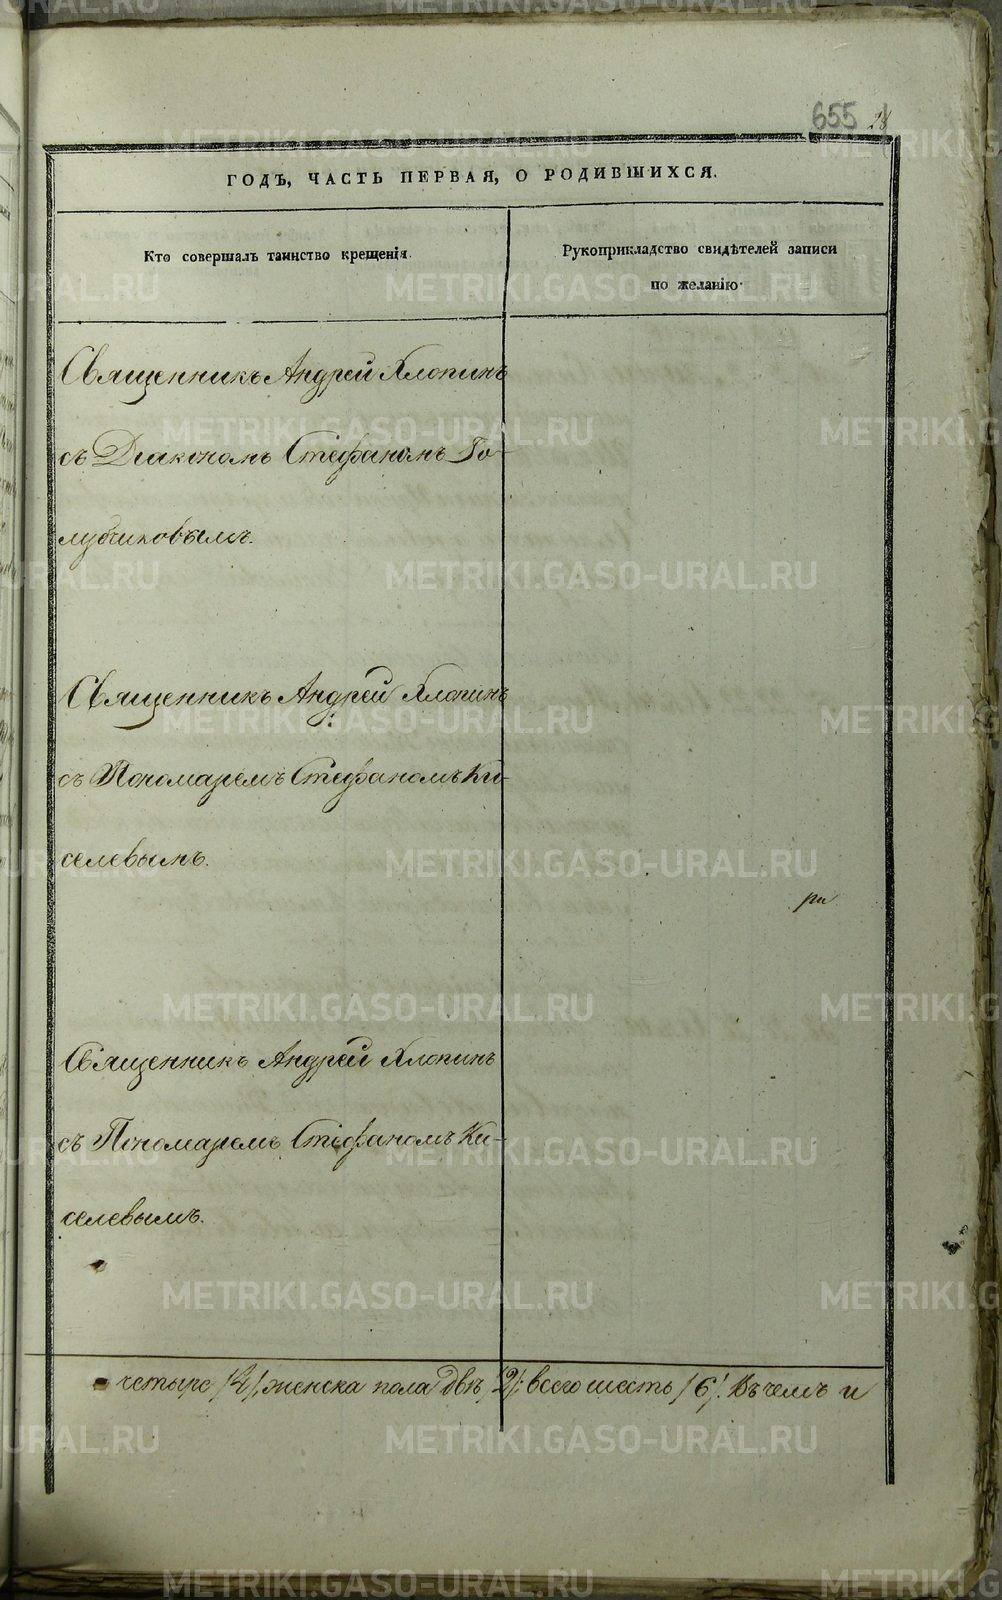 655 28
ГОДЪ, ЧАСТЬ ПЕРВАЯ, О РОДИВШИХСЯ.
Кто совершалъ таинство крещенія.
Рукоприкладство свидѣтелей записи
по желанію.
Священникъ Андрей Хлопинъ
съ Діакономъ Стефаномъ Го-
лубчиковымъ.
Священникъ Андрей Хлопинъ
съ Пономаремъ Стефаномъ Ки-
селевымъ.
ри
Священникъ Андрей Хлопинъ
съ Пономаремъ Стефаномъ Ки-
селевымъ.
четыре /4/, женска пола двѣ /2/: всего шесть /6/. Въ чемъ и
METRIKI.GASO-URAL.RU